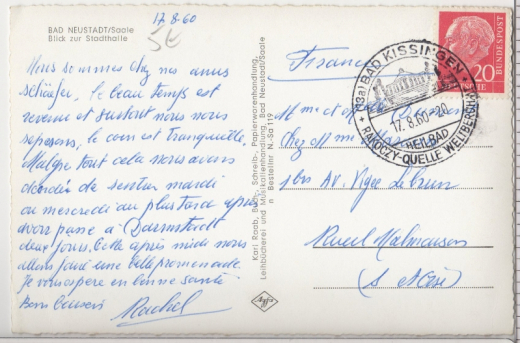 17.8.60
BAD NEUSTADT/Saale
Blick zur Stadthalle
5€
Nous sommes chez nos amis
le beau temps est
revenu et surtout nous nous
reposons, le coin est tranquille.
Malgré tout cela nous avons
décidé de rentrer mardi
ou mercredi au plus tard après
avoir passé à Darmstadt
deux jours. Cette après midi nous
allons faire une belle promenade.
Je vous espère en bonne santé
Bons baisers
Rachel
Karl Raab, Buch-, Schreib-, Papierwarenhandlung,
Leihbücherei und Musikalienhandlung, Bad Neustadt/Saale
Bestellnr. N.-Sa 119
Agfa
France
Mme et
Chez
Av. Vigée Lebrun
Rueil Malmaison
(S et Oise)
(13a) BAD KISSINGEN
17.8.60-20
HEILBAD
RAKOCZY-QUELLE WELTBERÜHMT
DEUTSCHE BUNDESPOST
20